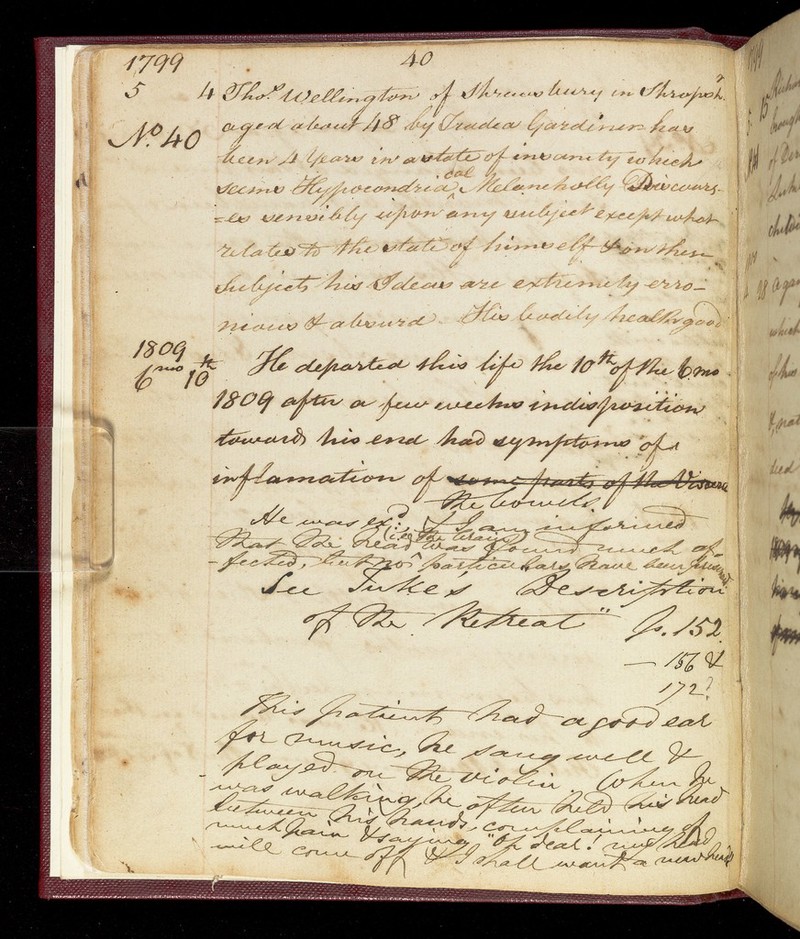 1799
40
5 4 Thos. Wellington of Shrewsbury in Shropsh.
No. 40 aged about 48 by Tradea Gardiner has
been 4 Years in a state of insanity which
seems Hypocondriacal Melancholly Discours-
=es sensibly upon any subject except what
relates to the state of himself & on these
Subjects his Ideas are extremely erro-
nious & absurd His bodily health good
1809
6mo 10th He departed this life the 10th of the 6 mo
1809 after a few weeks indisposition
towards his end had symptoms of
inflamation of some parts of the Viscera
the bowels
He was exd. & I am informed
that the head (i.e. the brain) was found much af-
fected, but no particulars have been
See Tuke's Description
of the Retreat" p. 152
— 156 &
172?
This patient had a good ear
for music, he sang well &
played on the violin. When he
was walking, he often held his head
between his hands, complaining of
much pain & saying "Oh dear! my head
will come off & I shall want a new head